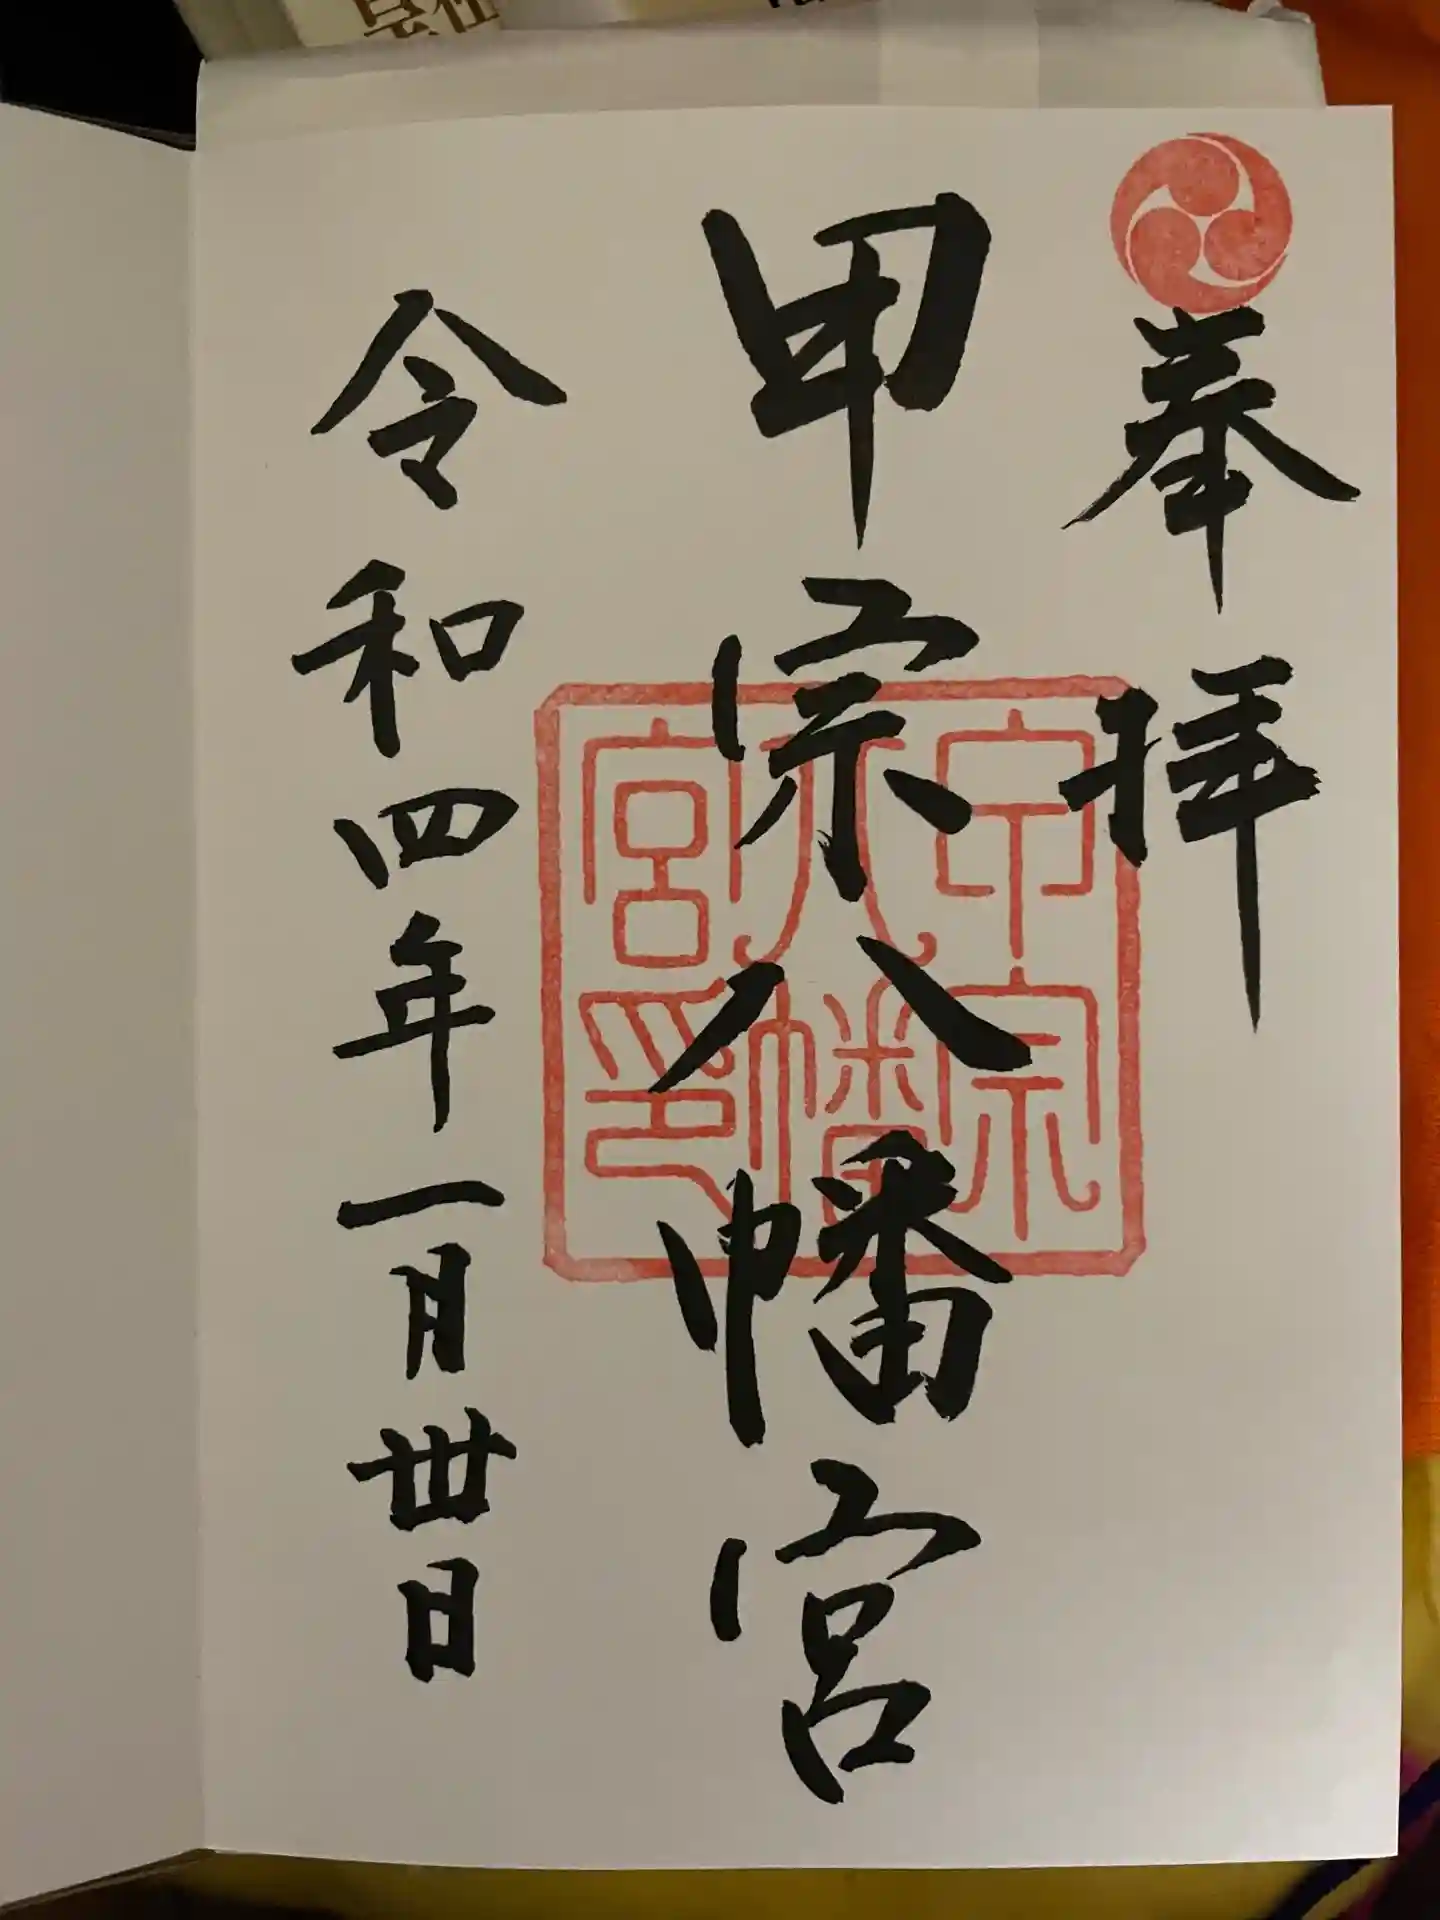 奉拝
甲宗八幡宮
令和四年一月丗日
甲宗
八幡
宮印